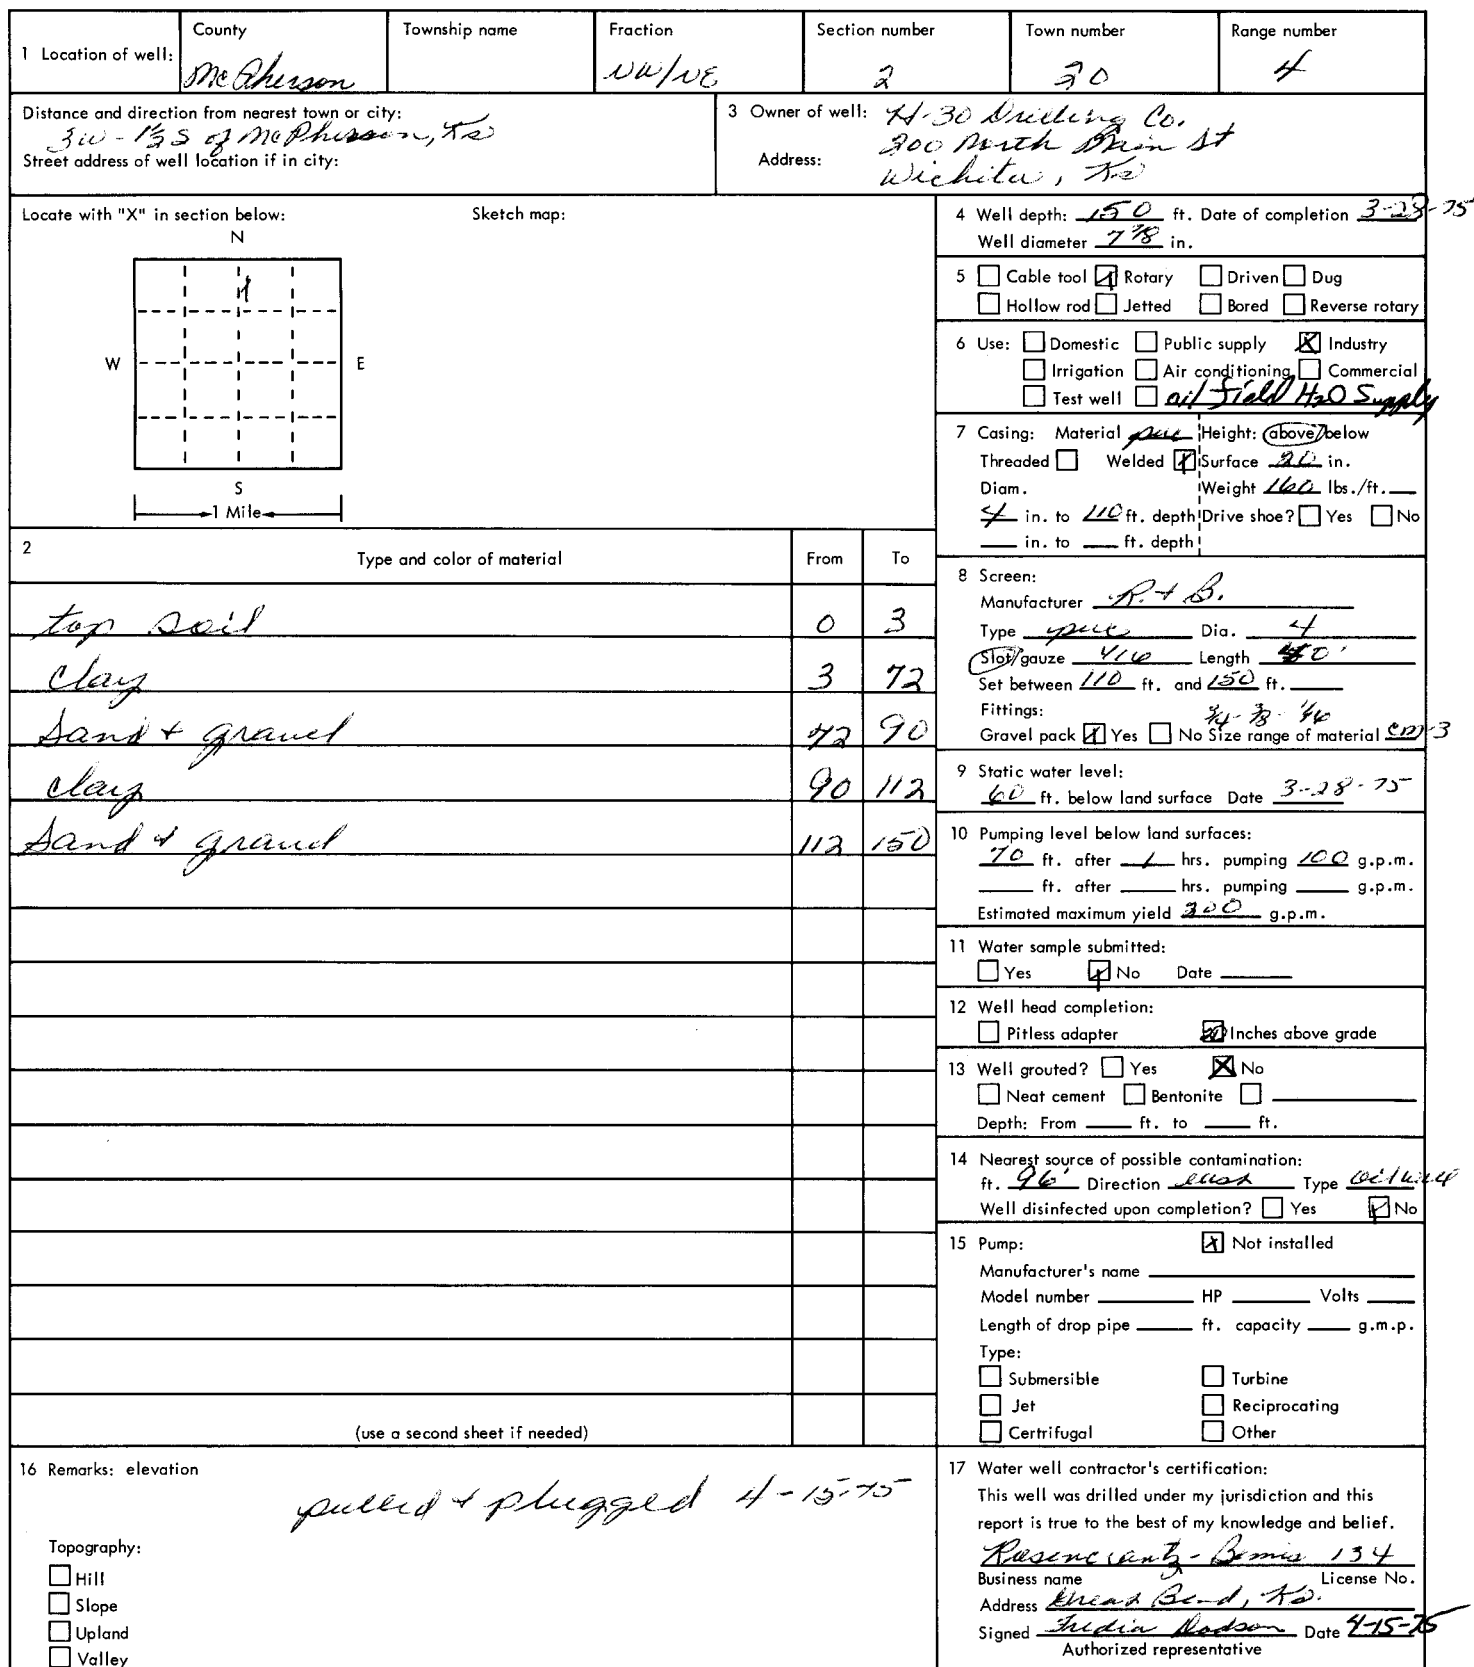 1 Location of well:
County
McPherson
Township name
Fraction
NW/NE
Section number
2
Town number
20
Range number
4
Distance and direction from nearest town or city:
3W - 1½ S of McPherson, Ks
Street address of well location if in city:
3 Owner of well: H-30 Drilling Co.
Address: 200 North Main St
Wichita, Ks
Locate with "X" in section below:
Sketch map:
N
W
E
S
1 Mile
4 Well depth: 150 ft. Date of completion 3-28-75
Well diameter 7 7/8 in.
5 Cable tool Rotary Driven Dug
Hollow rod Jetted Bored Reverse rotary
6 Use: Domestic Public supply X Industry
Irrigation Air conditioning Commercial
Test well oil field H2O Supply
7 Casing: Material pvc Height: above/below
Threaded Welded X Surface 20 in.
Diam. Weight 160 lbs./ft.
4 in. to 110 ft. depth Drive shoe? Yes No
in. to ft. depth
2 Type and color of material From To
top soil 0 3
clay 3 72
Sand + gravel 72 90
clay 90 112
Sand + gravel 112 150
(use a second sheet if needed)
8 Screen:
Manufacturer R. + B.
Type pvc Dia. 4
Slot/gauze 1/16 Length 40'
Set between 110 ft. and 150 ft.
Fittings: 3/4 - 3/8 - 1/16
Gravel pack X Yes No Size range of material cm-3
9 Static water level:
60 ft. below land surface Date 3-28-75
10 Pumping level below land surfaces:
70 ft. after 1 hrs. pumping 100 g.p.m.
ft. after hrs. pumping g.p.m.
Estimated maximum yield 200 g.p.m.
11 Water sample submitted:
Yes No Date
12 Well head completion:
Pitless adapter 20 Inches above grade
13 Well grouted? Yes X No
Neat cement Bentonite
Depth: From ft. to ft.
14 Nearest source of possible contamination:
ft. 96' Direction east Type oil well
Well disinfected upon completion? Yes No
15 Pump: X Not installed
Manufacturer's name
Model number HP Volts
Length of drop pipe ft. capacity g.m.p.
Type:
Submersible Turbine
Jet Reciprocating
Certrifugal Other
16 Remarks: elevation
pulled + plugged 4-15-75
Topography:
Hill
Slope
Upland
Valley
17 Water well contractor's certification:
This well was drilled under my jurisdiction and this
report is true to the best of my knowledge and belief.
Rosencrantz-Bemis 134
Business name License No.
Address Great Bend, Ks.
Signed Fredia Dodson Date 4-15-75
Authorized representative